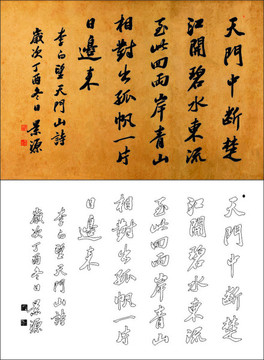 天門中断楚
江開碧水東流
至此四兩岸青山
相對出孤帆一片
日邊来
李白望天門山詩
歲次丁酉冬日景源
天門中断楚
江開碧水東流
至此四兩岸青山
相對出孤帆一片
日邊来
李白望天門山詩
歲次丁酉冬日景源